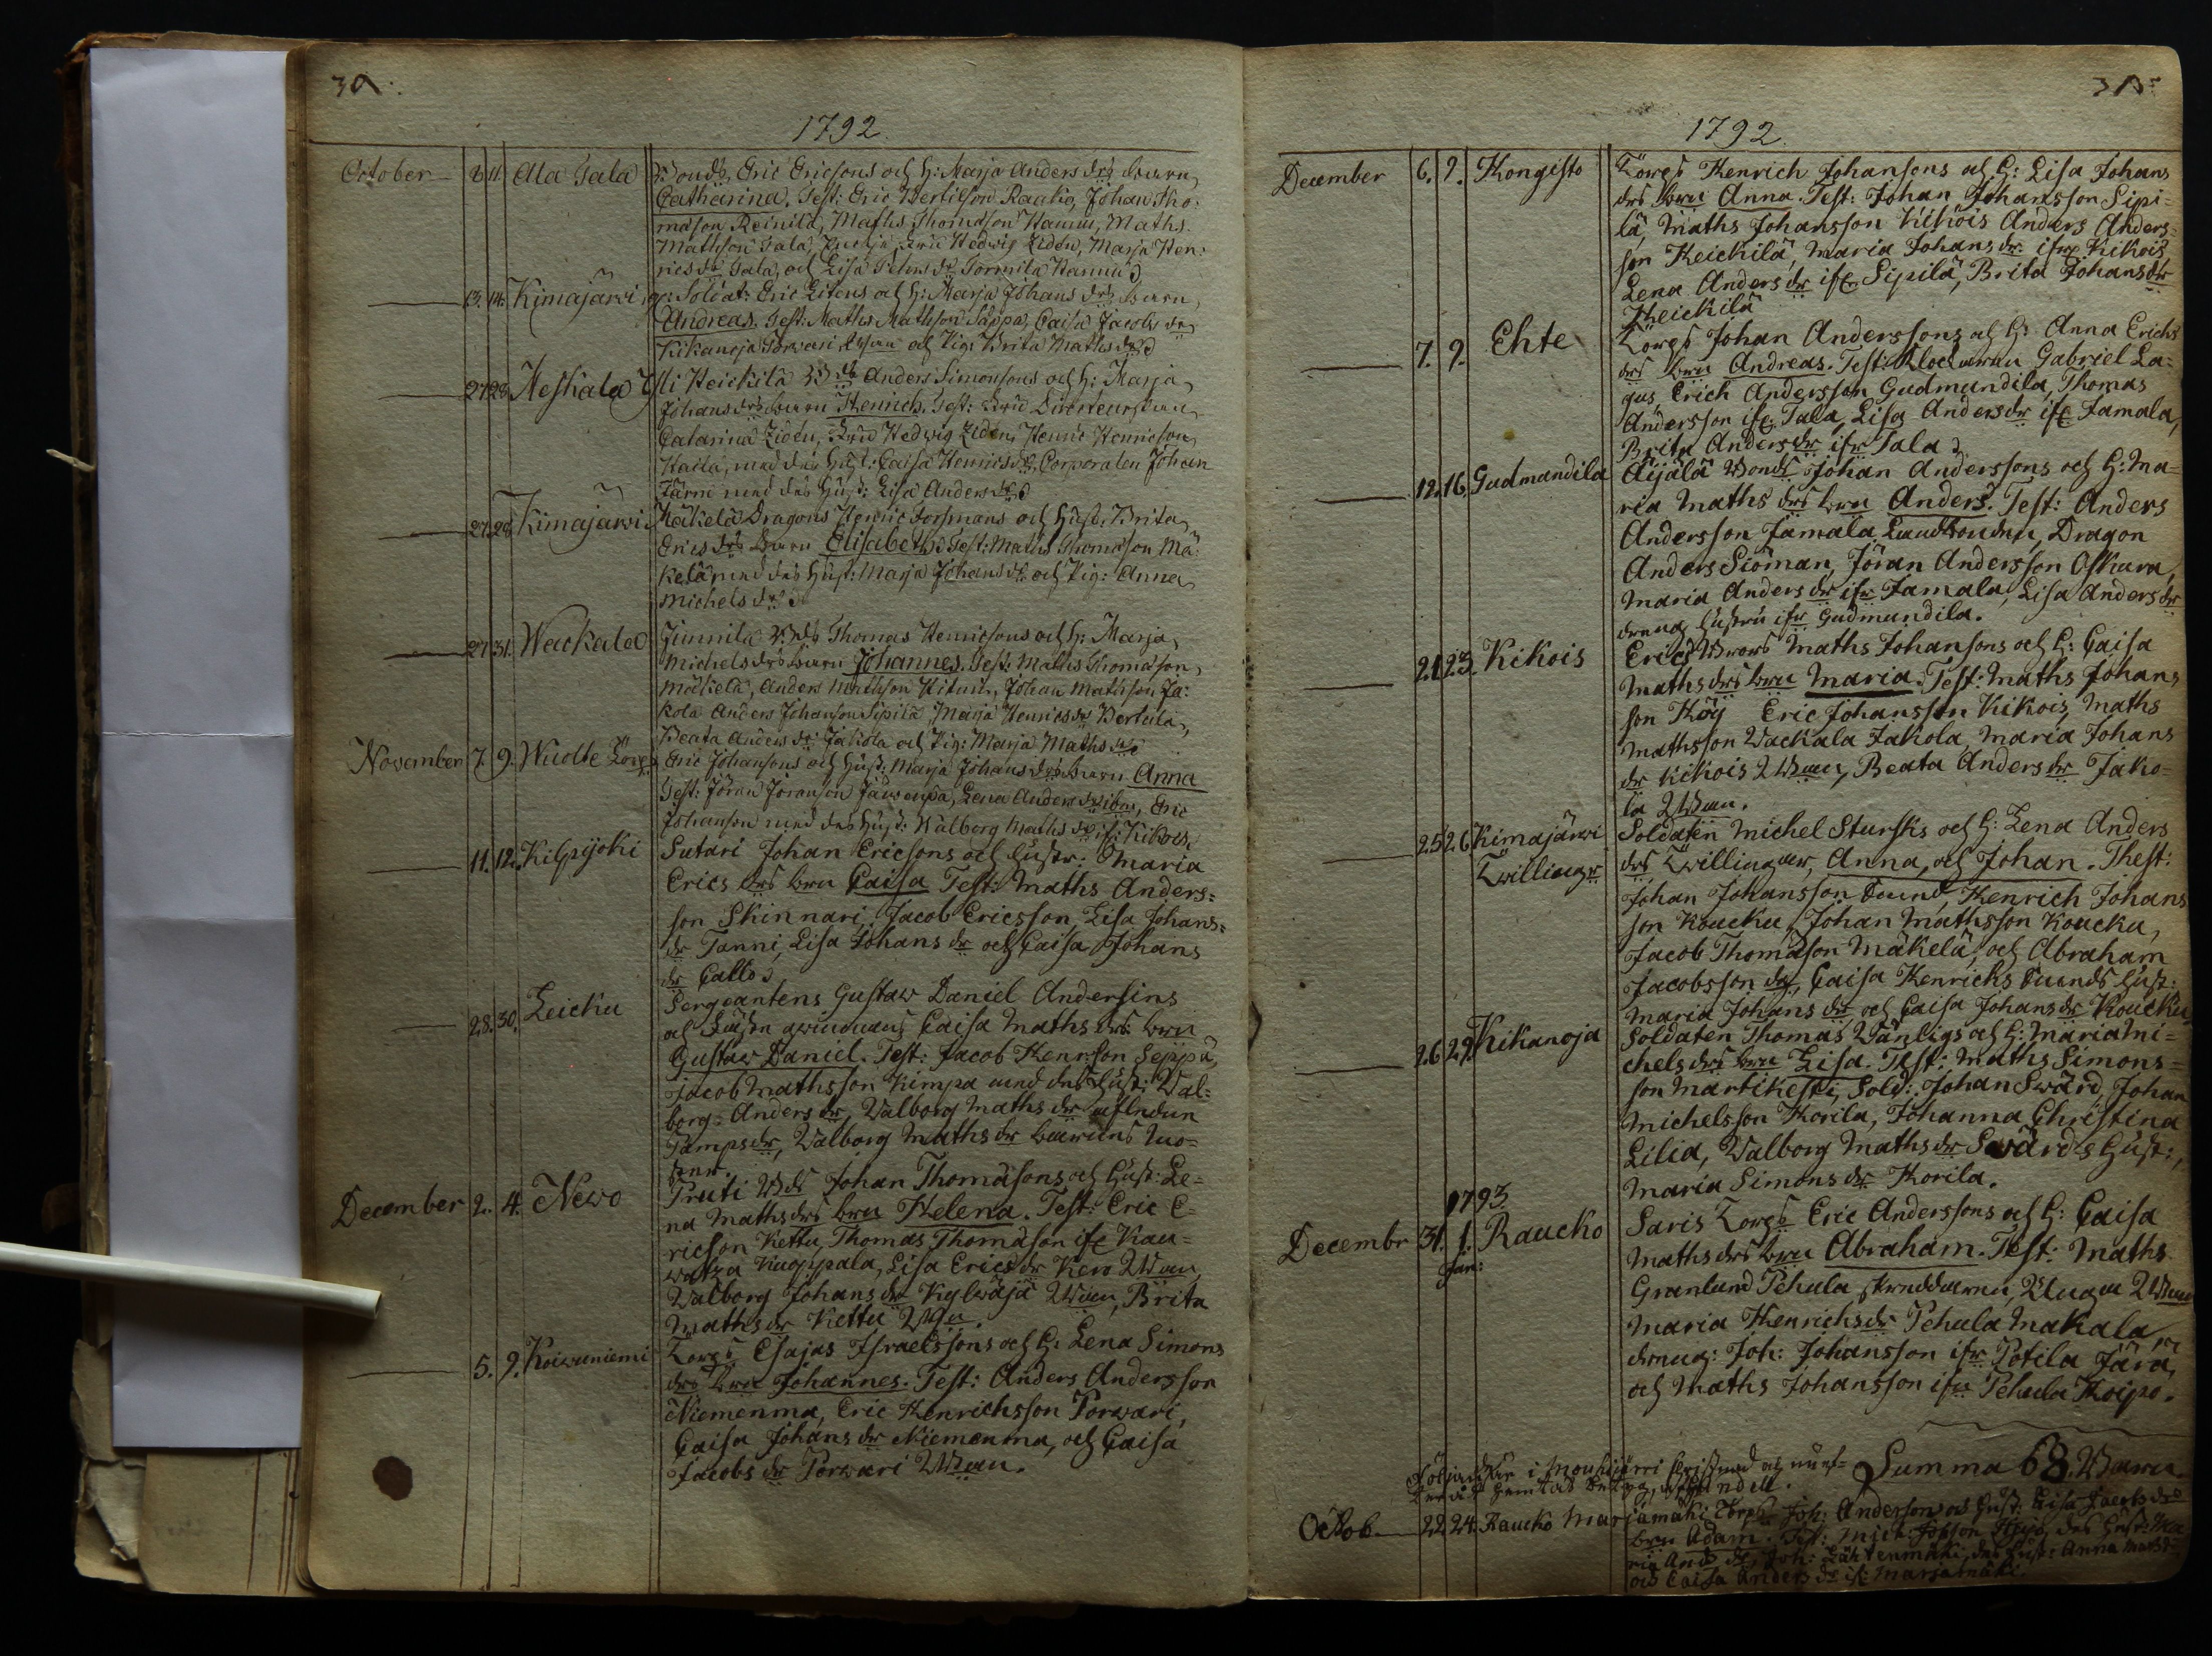 1792
October 8 11. Ala Jala Bonds Eric Ericsons och H: Marja Anders drs Barn
Catharina. Test: Eric Bertilson Raakio, Johan Tho-
mason Reinilä, Maths Thomason Hannu, Maths
Mathson Jala, Hedwig Ziden, Marja Hen-
rics dr Jala, och Lisa Hannu
13. 14. Kimajärvi Soldat: Eric Litens och H: Marja Johans drs Barn
Andreas. Test: Maths Mathson Säppä, Caisa Jacobs dr
Kikanoja Torvari och Pig: Brita Maths dr
27 28 Heickilä Bds Anders Simonsons och H: Marja
Johans drs Barn Henrich. Test:
Catarina Ziden, Hedwig Ziden, Henric Henricson
med dess Hust: Caisa Henrics dr, Corporalen Johan
Järn med dess Hust: Lisa Anders dr
27. 28 Kimajärvi Mäkelä Dragons Henric Forsmans och Hust. Brita
Erics drs Barn Elisabeth. Test: Maths Thomason Mä-
kelä med dess Hust: Marja Johans dr och Pig: Anna
Michels dr
27 31. Wackala Junnila Bds Thomas Henricsons och H: Marja
Michels drs Barn Johannes. Test: Maths Thomason
Mäkelä, Anders Mathson Johan Mathson Ja-
kola Anders Johanson Sipilä, Marja Henrics dr Bertula,
Beata Anders dr Jakola och Pig: Marja Maths dr
November 7. 9. Wuolte Torp: Eric Johansons och Hust: Marja Johans drs Barn Anna
Test: Jöran Jöranson Lena Anders dr ibm, Eric
Johanson med dess Hust: Walborg Maths dr Kikois,
11. 12. Kilpijoki Sutari Johan Ericsons och hustr: Maria
Erics drs brn Caisa Test: Maths Anders-
son Skinnari, Jacob Ericsson, Lisa Johans-
dr Tanni, Lisa Johans dr och Caisa Johans
dr Callo
28. 30. Leicku Sergeantens Gustaw Daniel Andersins
och Caisa Maths drs brn
Gustaw Daniel. Test: Jacob Henrson Seppä,
Jacob Mathsson Kimpa med dess Hust: Wal-
borg Anders dr, Walborg Maths dr
Walborg Maths dr barnens mo-
ster.
December 2. 4. Newo Pruti Bds Johan Thomasons och Hust: Le-
na Maths drs brn Helena. Test: Eric E-
ricson Kettu, Thomas Thomason Kau-
watza Kuoppala, Lisa Erics dr
Walborg Johans dr Kylwäjä Brita
Maths dr Kettu
5. 9. Koiwuniemi Torps Esajas Israelssons och H: Lena Simons
drs brn Johannes. Test: Anders Andersson
Niemenmä, Eric Henrichsson Porwari,
Caisa Johans dr Niemenmä, och Caisa
Jacobs dr Porwari
1792
December 6. 9. Kongisto Torps Henrich Johansons och H: Lisa Johans
drs brn Anna. Test: Johan Johansson Sipi-
lä, Maths Johansson Kikois Anders Anders-
son Heickilä, Maria Johans dr Kikois,
Lena Anders dr Sipilä, Brita Johans dr
Heickilä
7. 9. Ehte Torps Johan Anderssons och H: Anna Erichs
drs brn Andreas. Test: Klockaren Gabriel La-
gus, Erich Andersson Gudmundila, Thomas
Andersson Tala, Lisa Anders dr Jamala,
Brita Anders dr Tala
12. 16. Gudmundila Äijälä Bonds Johan Anderssons och H: Ma-
ria Maths drs brn Anders. Test: Anders
Andersson Jamala Landbonden, Dragon
Anders Siöman, Jöran Andersson Oskara,
Maria Anders dr Jamala, Lisa Anders dr
dreng hustru Gudmundila.
21. 23. Kikois Erics Maths Johansons och H: Caisa
Maths drs brn Maria. Test: Maths Johans
son Köy Eric Johansson Kikois, Maths
Mathsson Wackala Jakola, Maria Johans
dr Kikois Beata Anders dr Jako-
la
25 26 Kimajärwi
Twillingr Soldaten Michel Stursks och H: Lena Anders
drs Twillingar, Anna, och Johan. Thest:
Johan Johansson Henrich Johans
son Koucku, Johan Mathsson Koucku,
Jacob Thomason Mäkelä, och Abraham
Jacobsson Caisa Henrichs Hust:
Maria Johans dr och Caisa Johans dr Koucku
26 29. Kikanoja Soldaten Thomas Wänligs och H: Maria Mi-
chels drs brn Lisa. Test: Maths Simons-
son Martikesti, Sold: Johan Swärd, Johan
Michelsson Korila, Johanna Christina
Lilia, Walborg Maths dr Swärds Hust:,
Maria Simons dr Korila.
1793
Decembr 31. 1. Jan: Raucko Saris Torps Eric Anderssons och H: Caisa
Maths drs brn Abraham. Test: Maths
Granlund Pehula Skreddaren,
Maria Henrichs dr Pehula Makala,
dreng: Joh: Johansson Potila Jära,
och Maths Johansson Pehula Koipo.
Summa 68.
i Mouhijärvi
Octob 22 24. Raucko Marjamäki Torps Joh: Andersons och Hust: Lisa Jacobs drs
brn Adam. Test: Mich: des Hust: Ma
ria And dr, Joh: Lähtenmäki, des Hust: Anna Mats dr
och Caisa Anders dr Marjamäki.